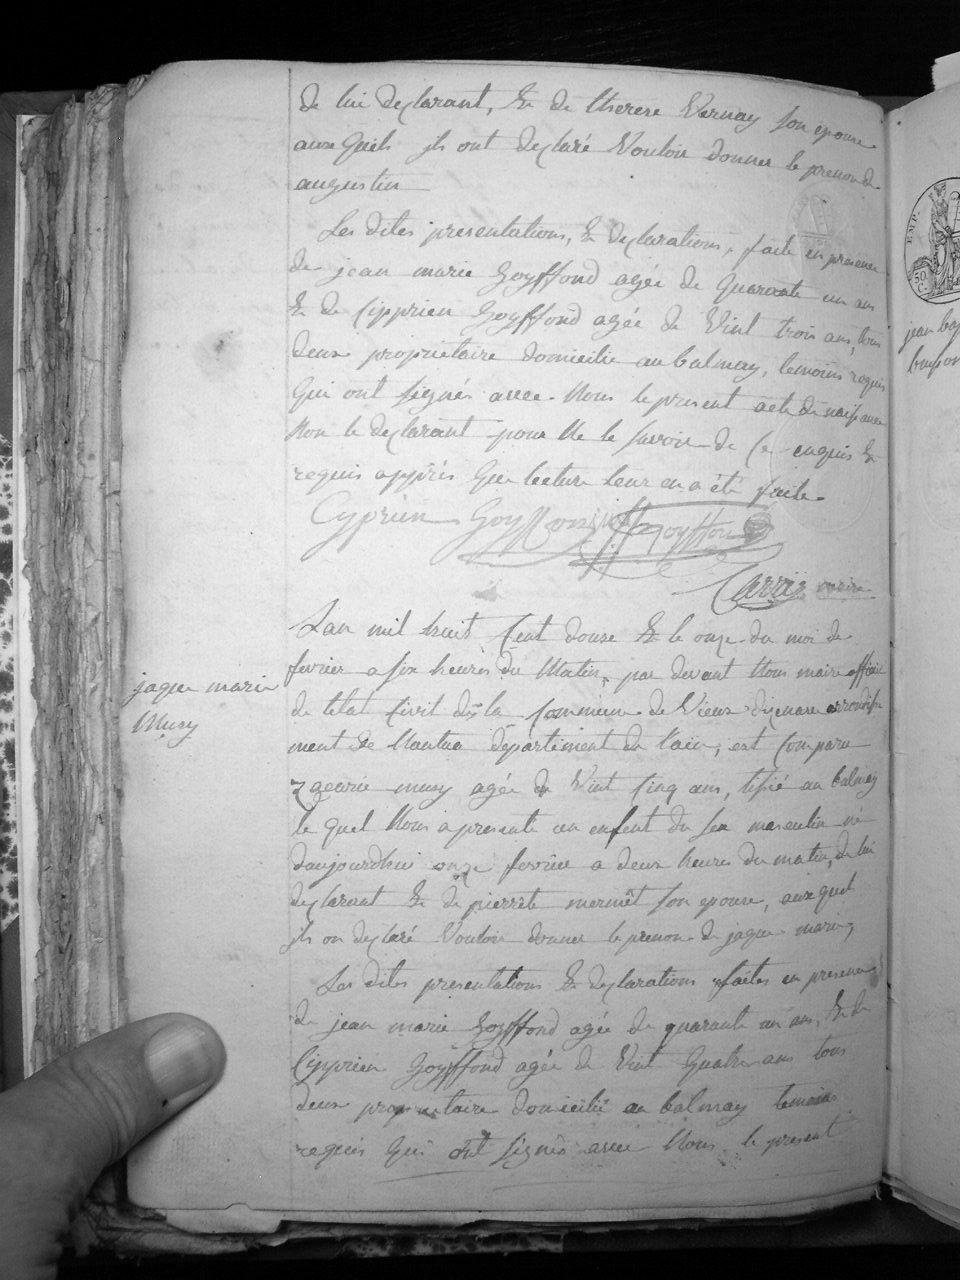 de lui declarant, & de therese Vernay son epouse
aux Quels ils ont declaré Vouloir donner le prenom de
augustin
Les dites presentations, & declarations, faite en presence
de jean marie Goyffond agée de Quarante un ans
& de Cipprien Goyffond agée de Vint trois ans, tous
deux proprietaire domicilie au balmay, temoins requis
Qui ont signés avec Nous le present acte de naissance
Non le declarant pour Ne le savoir de Ce enquis &
requis apprés Que lecture leur en a été faite
Cyprien Goyffon Goyffon
Carrier maire
Lan mil huit Cent douse & le onze du moi de
fevrier a six heures du Matin, par devant Nous maire officier
de letat Civil de la Commune de Vieux disenave arrondisse
jaque marie
Musy
ment de Nantua departement de lain, est Comparu
zacarie musy agée de Vint Cinq ans, au balmay
le quel Nous a presenté un enfent du sex masculin né
daujourdhui onze fevrier a deux heures du matin, de lui
declarant & de pierrete mermet son epouse, aux quel
ils on declaré Vouloir donner le prenom de jaque marie,
Les dites presentations & declarations faites en presence
de jean marie Goyffond agée de quarante un ans, & de
Cipprien Goyffond agée de Vint Quatre ans tous
deux proprietaire domicilié au balmay temoins
requis Qui ont signés avec Nous le present
EMP.
50
C.
jean bap